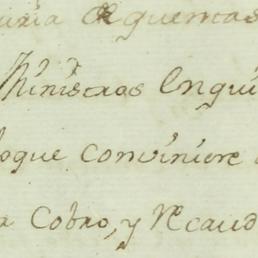 uria de quentas
Ministros enqui
oque conviniere
a Cobro, y Recaud